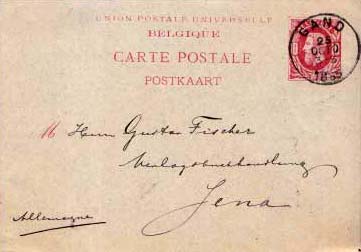 UNION POSTALE UNIVERSELLE
BELGIQUE
CARTE POSTALE
POSTKAART
GAND
25
OCT
Herrn Gustav Fischer
Verlagsbuchhandlung
Jena
Allemagne